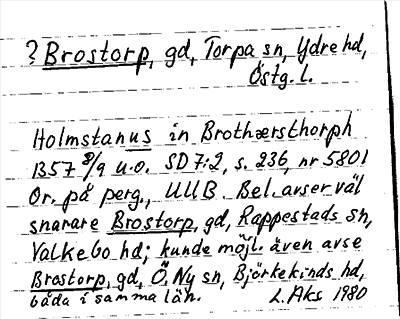 ? Brostorp, gd, Torpa sn, Ydre hd,
Östg. l.
Holmstanus in Brothærsthorph
1357 8/9 u.o. SD 7:2, s. 236, nr 5801
Or. på perg., UUB. Bel. avser väl
snarare Brostorp, gd, Rappestads sn,
Valkebo hd; kunde möjl. även avse
Brostorp, gd, Ö. Ny sn, Björkekinds hd,
båda i samma län. L. Aks 1980